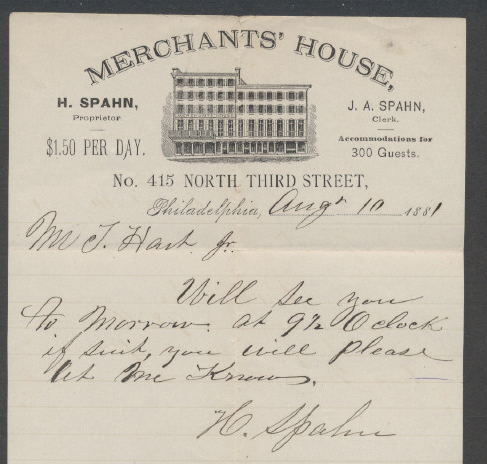 MERCHANTS' HOUSE,
H. SPAHN,
Proprietor.
$1.50 PER DAY.
J. A. SPAHN,
Clerk.
Accommodations for
300 Guests.
No. 415 NORTH THIRD STREET,
Philadelphia, Augt 10 1881
Mr T. Hart Jr.
Will see you
to Morrow. at 9½ O clock
if suit, you will please
let me Know.
H. Spahn